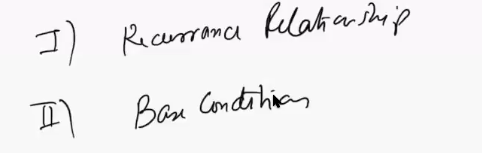 I) Recurrance Relationship
II) Base Conditions